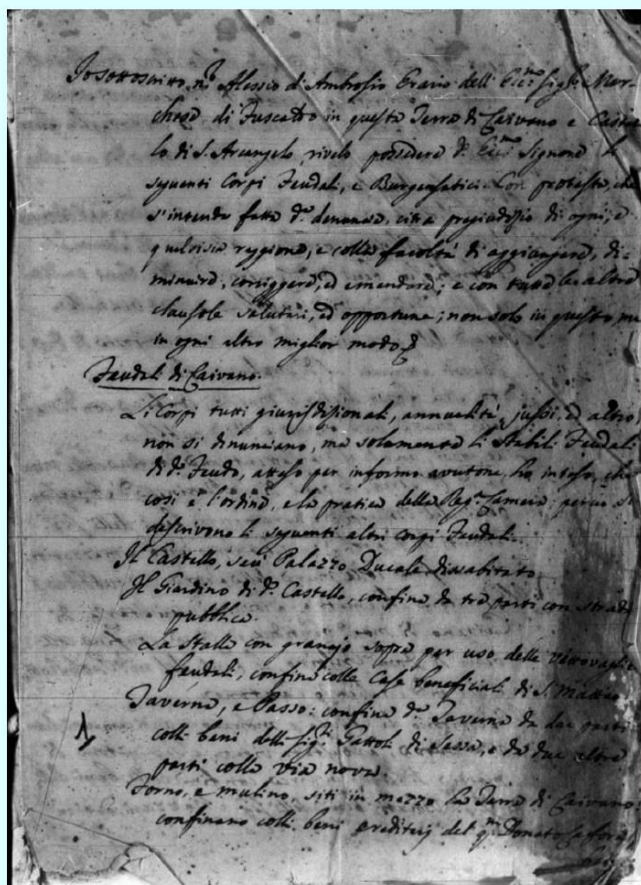 Io sottoscritto, n.r Alessio d'Ambrosio Erario dell'Ecc.mo Sig.re Mar-
chese di Fuscaldo in questa Terra di Caivano e Casa-
le di S. Arcangelo rivelo possedere d.o Ecc.mo Signore li
seguenti Corpi Feudali, e Burgensatici. Con protesta, che
s'intenda fatta d.a denuncia, citra pregiudizio di ogni, e
qualsisia raggione, e colla facoltà di aggiungere, di-
minuire, corriggere, ed emendare; e con tutte le altre
clausole salutari, ed opportune; non solo in questo, ma
in ogni altro miglior modo
Feudali di Caivano.
Li Corpi tutti giurisdizionali, annualità, jussi, ed altro,
non si dinunciano, ma solamente li stabili Feudali
di d.o Feudo, atteso per informo avutone, ha inteso, che
così è l'ordine, e la pratica della Reg.a Camera; perciò si
descrivono li seguenti altri corpi Feudali.
Il Castello, seu Palazzo Ducale disabitato
Il Giardino di d.o Castello, confina da tre parti con strada
pubblica.
La stalla con granajo sopra per uso delle vittovaglie
feudali, confina colle Case beneficiali di S. Matteo
Taverna, e Passo: confina d.a Taverna da due parti
colli beni delli Sig.ri Gattoli di Sessa, e da due altre
parti colla via nova.
Forno, e mulino, siti in mezzo la Terra di Caivano
confinano colli beni ereditarj del q.m Donato